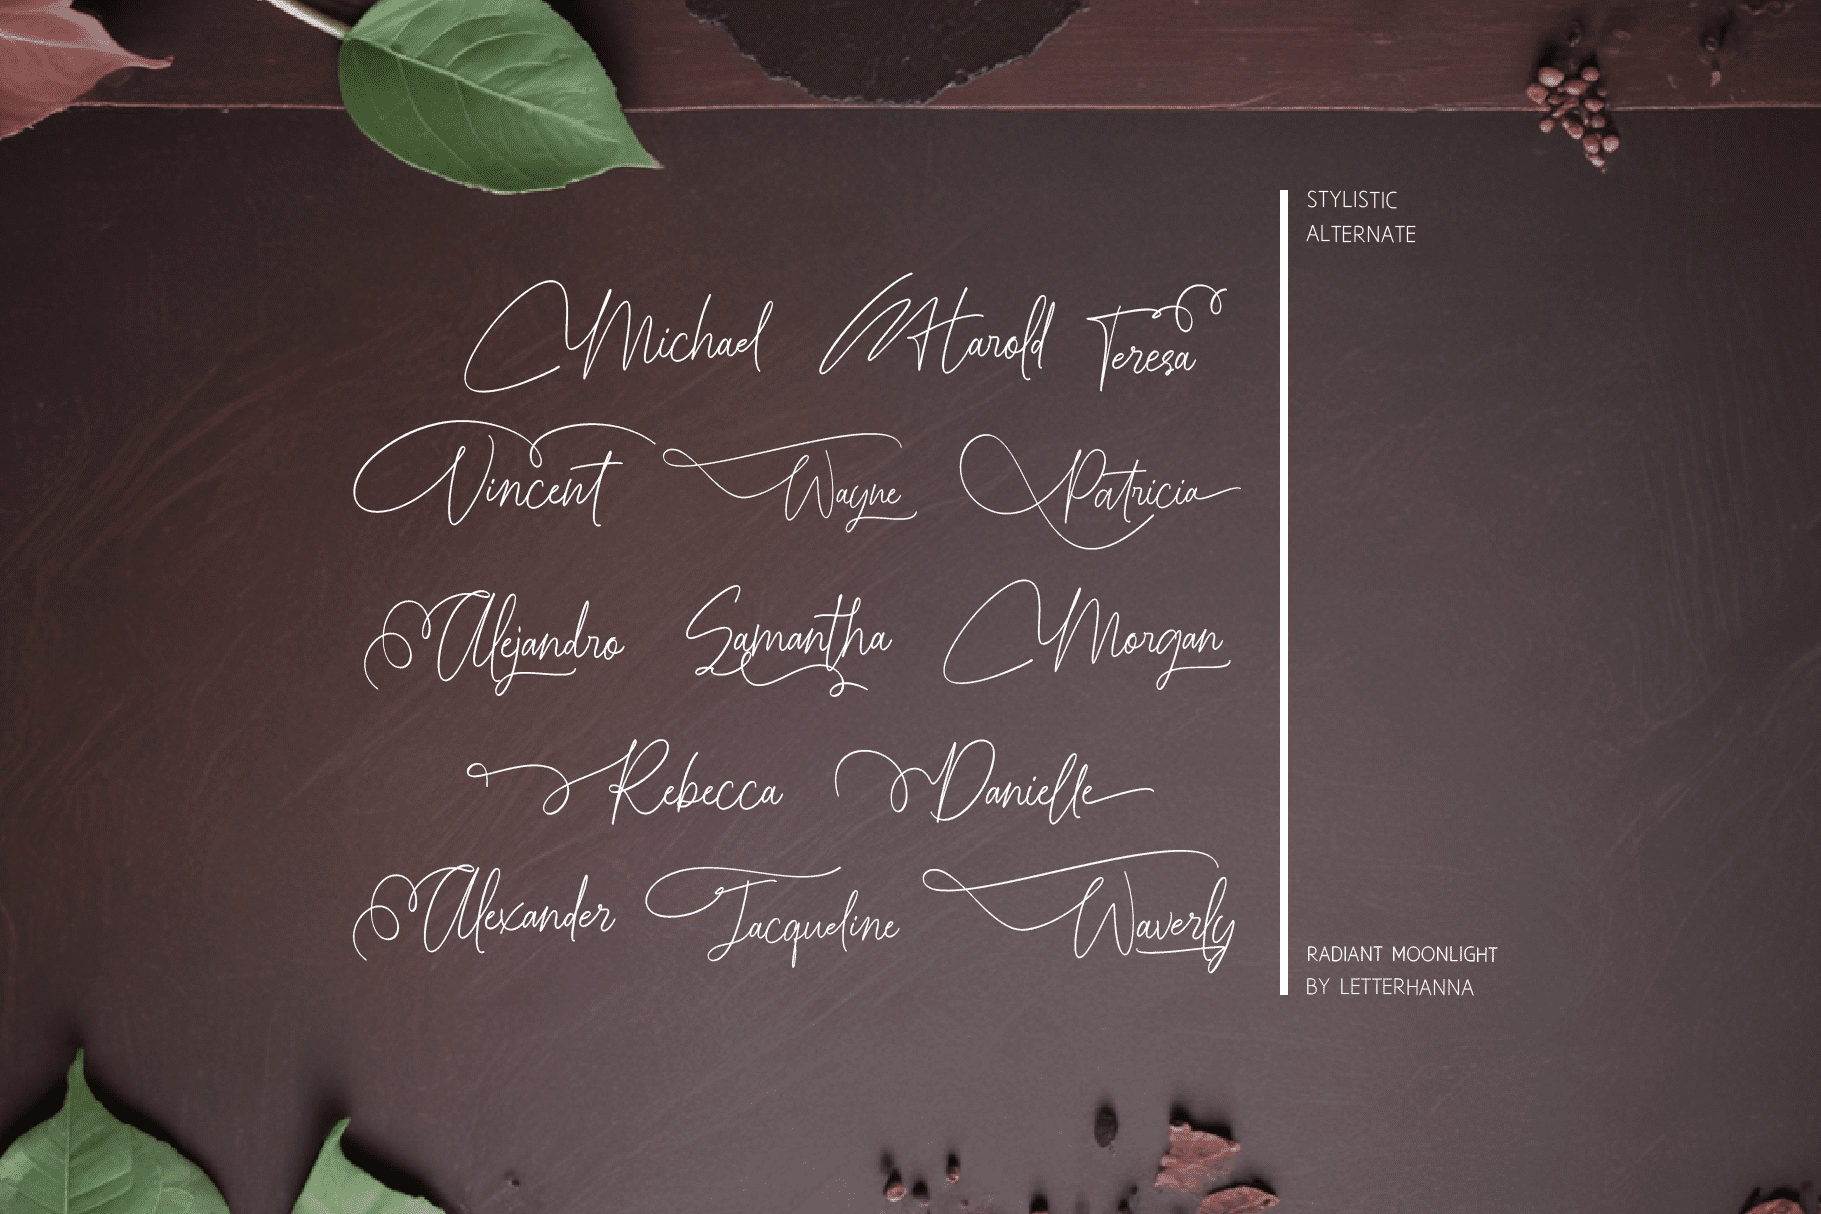 Michael Harold Teresa
Vincent Wayne Patricia
Alejandro Samantha Morgan
Rebecca Danielle
Alexander Jacqueline Waverly
STYLISTIC
ALTERNATE
RADIANT MOONLIGHT
BY LETTERHANNA